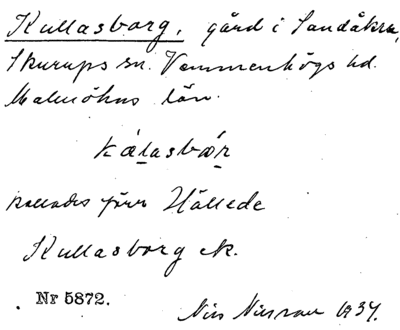 Kullasborg, gård i Sandåkra,
Skurups sn. Vemmenhögs hd.
Malmöhus län.
kallades förr Hållede
Kullasborg ek.
Nr 5872.
Nils Nilsson 1934.